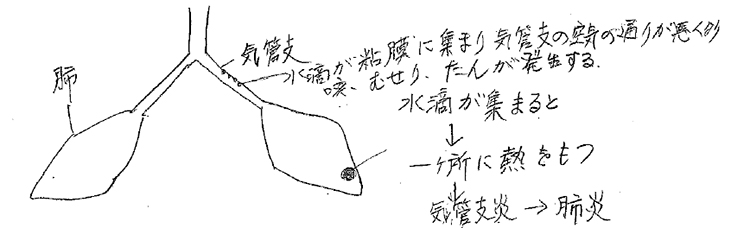 気管支
水滴が粘膜に集まり気管支の空気の通りが悪くなり
咳、むせり、たんが発生する.
肺
水滴が集まると
↓
一ヶ所に熱をもつ
↓
気管支炎→肺炎